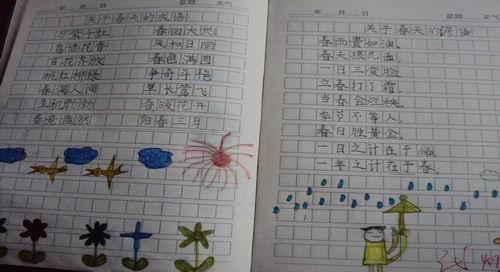 年 月 日 星期 天气
关于春天的成语
万紫千红 春回大地
鸟语花香 风和日丽
百花齐放 春色满园
桃红柳绿 争奇斗艳
春满人间 草长莺飞
生机勃勃 春暖花开
春意盎然 阳春三月
年 月 日 星期 天气
关于春天的谚语
春雨贵如油。
春天孩儿面,
一日三变脸。
立春打了霜,
当春会烂秧。
季节不等人,
春日胜黄金。
一日之计在于晨,
一年之计在于春。